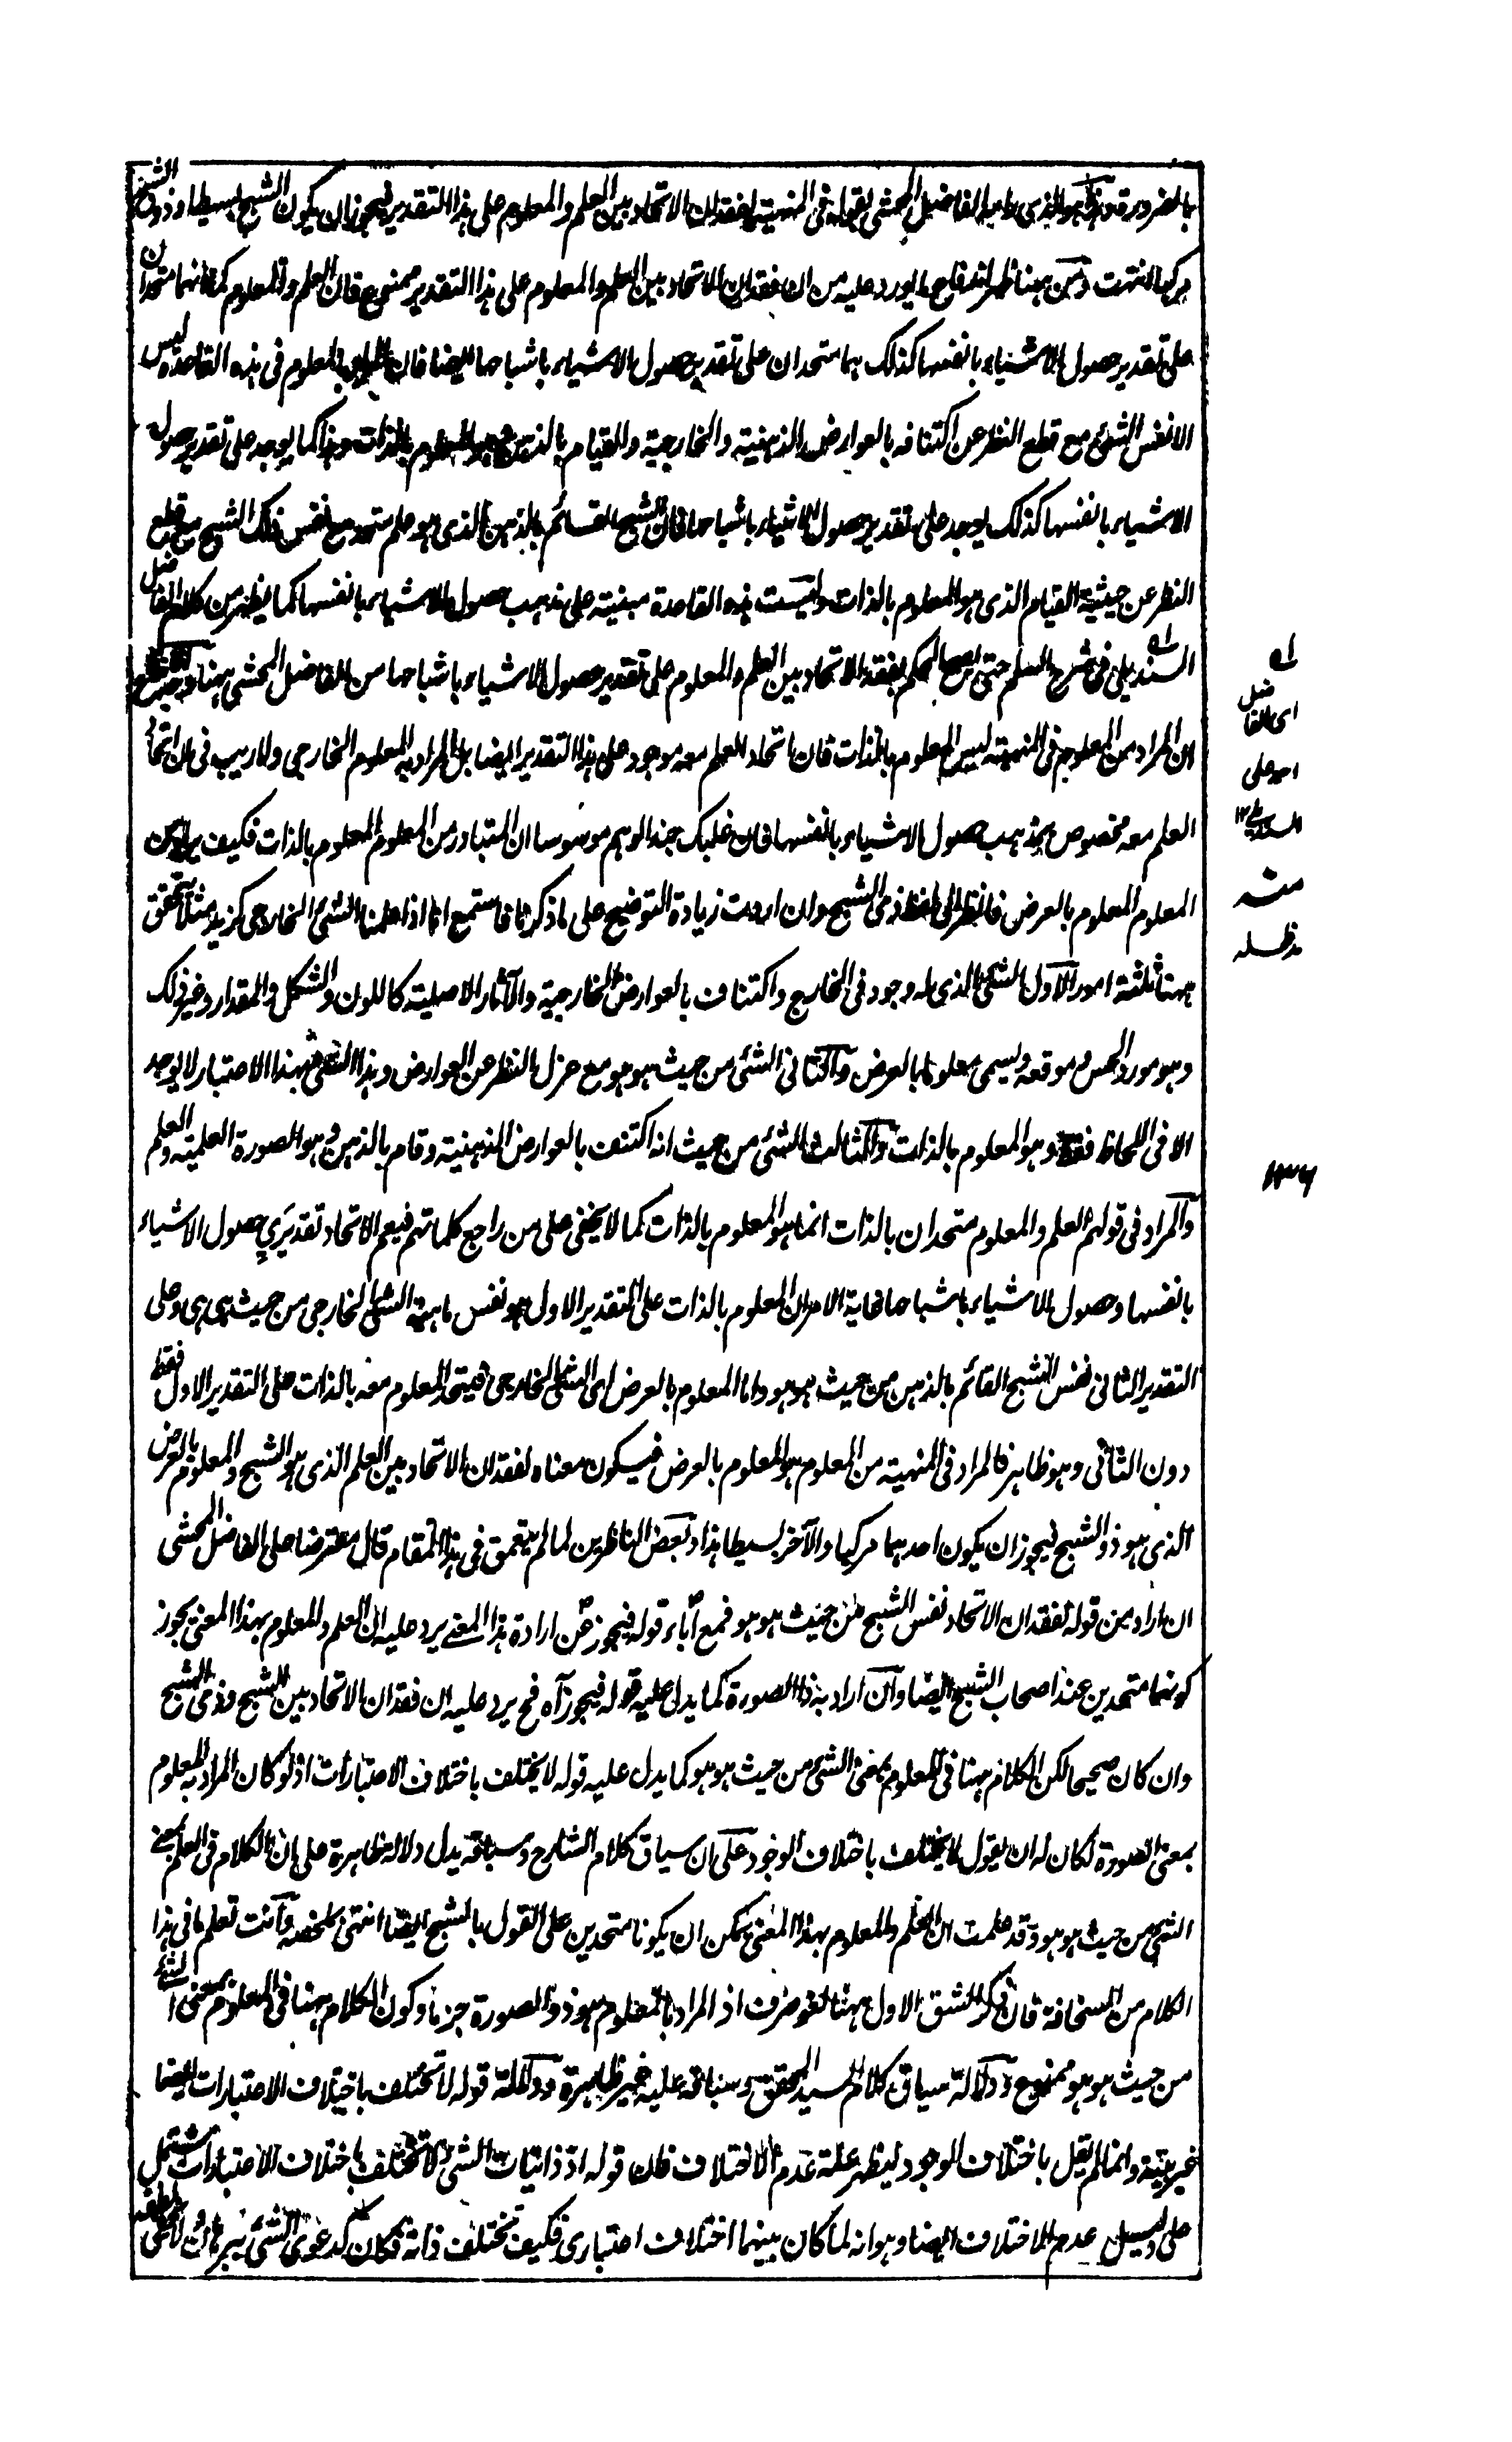 بالضرورة وهذا هو الذي رامه الفاضل المحشي بقوله في المنهية لفقدان الاتحاد بين العلم والمعلوم على هذا التقدير فيجوز ان يكون الشبح بسيطا وذو الشبح
مركبا انتهت ومن ههنا ظهر اندفاع ما يورد عليه من ان فقدان الاتحاد بين العلم والمعلوم على هذا التقدير ممنوع فان العلم والمعلوم كما انهما متحدان
على تقدير حصول الاشياء بانفسها كذلك هما متحدان على تقدير حصول الاشياء باشباحها ايضا فان المراد بالمعلوم في هذه القاعدة ليس
الا نفس الشئ مع قطع النظر عن اكتنافه بالعوارض الذهنية والخارجية والقيام بالذهن وهو المعلوم بالذات وهذا كما يوجد على تقدير حصول
الاشياء بانفسها كذلك يوجد على تقدير حصول الاشياء باشباحها فان الشبح القائم بالذهن الذي هو علم متحد مع نفس ذلك الشبح مع قطع
النظر عن حيثية القيام الذي هو المعلوم بالذات وليست هذه القاعدة مبنية على مذهب حصول الاشياء بانفسها كما يظهر من كلام الفاضل
السنديلي في شرح السلم حتى يصح الحكم بفقد الاتحاد بين العلم والمعلوم على تقدير حصول الاشياء باشباحها من الفاضل المحشي ههنا ووجه الاندفاع
ان المراد من المعلوم في المنهية ليس المعلوم بالذات فان اتحاد العلم معه موجود على هذا التقدير ايضا بل المراد به المعلوم الخارجي ولا ريب في ان اتحاد
العلم معه مخصوص بمذهب حصول الاشياء بانفسها فان غلبك جند الوهم موسوسا ان المتبادر من المعلوم المعلوم بالذات فكيف يراد من
المعلوم المعلوم بالعرض فانظر الى لفظ ذي الشبح وان اردت زيادة التوضيح على ما ذكرنا فاستمع انا اذا علمنا الشئ الخارجي كزيد مثلا تحقق
ههنا ثلثة امور الاول الشئ الذي له وجود في الخارج واكتناف بالعوارض الخارجية والآثار الاصلية كاللون والشكل والمقدار وغير ذلك
وهو مورد الحس وموقعه ويسمى معلوما بالعرض والثاني الشئ من حيث هو هو مع عزل النظر عن العوارض وهذا الشئ بهذا الاعتبار لا يوجد
الا في اللحاظ فقط وهو المعلوم بالذات والثالث الشئ من حيث انه اكتنف بالعوارض الذهنية وقام بالذهن وهو الصورة العلمية والعلم
والمراد في قولهم العلم والمعلوم متحدان بالذات انما هو المعلوم بالذات كما لا يخفى على من راجع كلماتهم فيعم الاتحاد تقديري حصول الاشياء
بانفسها وحصول الاشياء باشباحها غاية الامر ان المعلوم بالذات على التقدير الاول هو نفس ماهية الشئ الخارجي من حيث هي هي وعلى
التقدير الثاني نفس الشبح القائم بالذهن من حيث هو هو واما المعلوم بالعرض اي الشئ الخارجي فيتحد المعلوم معه بالذات على التقدير الاول فقط
دون الثاني وهو ظاهر فالمراد في المنهية من المعلوم هو المعلوم بالعرض فيكون معناه لفقدان الاتحاد بين العلم الذي هو الشبح والمعلوم بالعرض
الذي هو ذو الشبح فيجوز ان يكون احدهما مركبا والآخر بسيطا هذا وبعض الناظرين لما لم يتعمق في هذا المقام قال معترضا على الفاضل المحشي
ان اراد من قوله لفقدان الاتحاد نفس الشبح من حيث هو هو فمع اباء قوله فيجوز عن ارادة هذا المعنى يرد عليه ان العلم والمعلوم بهذا المعنى يجوز
كونهما متحدين عند اصحاب الشبح ايضا وان اراد به ذا الصورة كما يدل عليه قوله فيجوز آه فح يرد عليه ان فقدان الاتحاد بين الشبح وذي الشبح
وان كان صحيحا لكن الكلام ههنا في المعلوم بمعنى الشئ من حيث هو هو كما يدل عليه قوله لا يختلف باختلاف الاعتبارات اذ لو كان المراد به المعلوم
بمعنى الصورة لكان له ان يقول لا يختلف باختلاف الوجود على ان سياق كلام الشارح وسباقه يدل دلالة ظاهرة على ان الكلام في العلم بمعنى
الشئ من حيث هو هو وقد علمت ان العلم والمعلوم بهذا المعنى يمكن ان يكونا متحدين على القول بالشبح ايضا انتهى بلخصه وانت تعلم ما في هذا
الكلام من السخافة فان ذكر الشق الاول ههنا لغو صرف اذ المراد بالمعلوم هو ذو الصورة جزما وكون الكلام ههنا في المعلوم بمعنى الشئ
من حيث هو هو ممنوع ودلالة سياق كلام السيد المحقق وسباقه عليه غير ظاهرة ودلالة قوله لا تختلف باختلاف الاعتبارات ايضا
غير بينة وانما لم يقل باختلاف الوجود ليظهر علة عدم الاختلاف فان قوله اذ ذاتيات الشئ لا تختلف باختلاف الاعتبارات مشتمل
على دليل عدم الاختلاف ايضا وهو انه لما كان بينهما اختلاف اعتباري فكيف تختلف ذاته فكان كدعوى الشئ ببرهان لا يخفى
له
اي الفاضل
احمد علي
السنديلي ١٢
منه
مد ظله
١٣٦